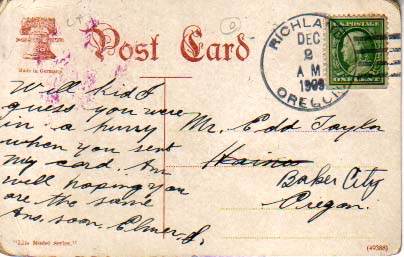 Post Card
Made in Germany
RICHLAND
DEC
2
A M
1909
OREGON
U.S. POSTAGE
ONE CENT
Well Kid I
guess you were
in a hurry
when you sent
my card. Am
well hoping you
are the same
Ans. soon. Elmer S.
Mr. Edd Taylor
Haines
Baker City
Oregon.
"Life Model Series."
(49388)